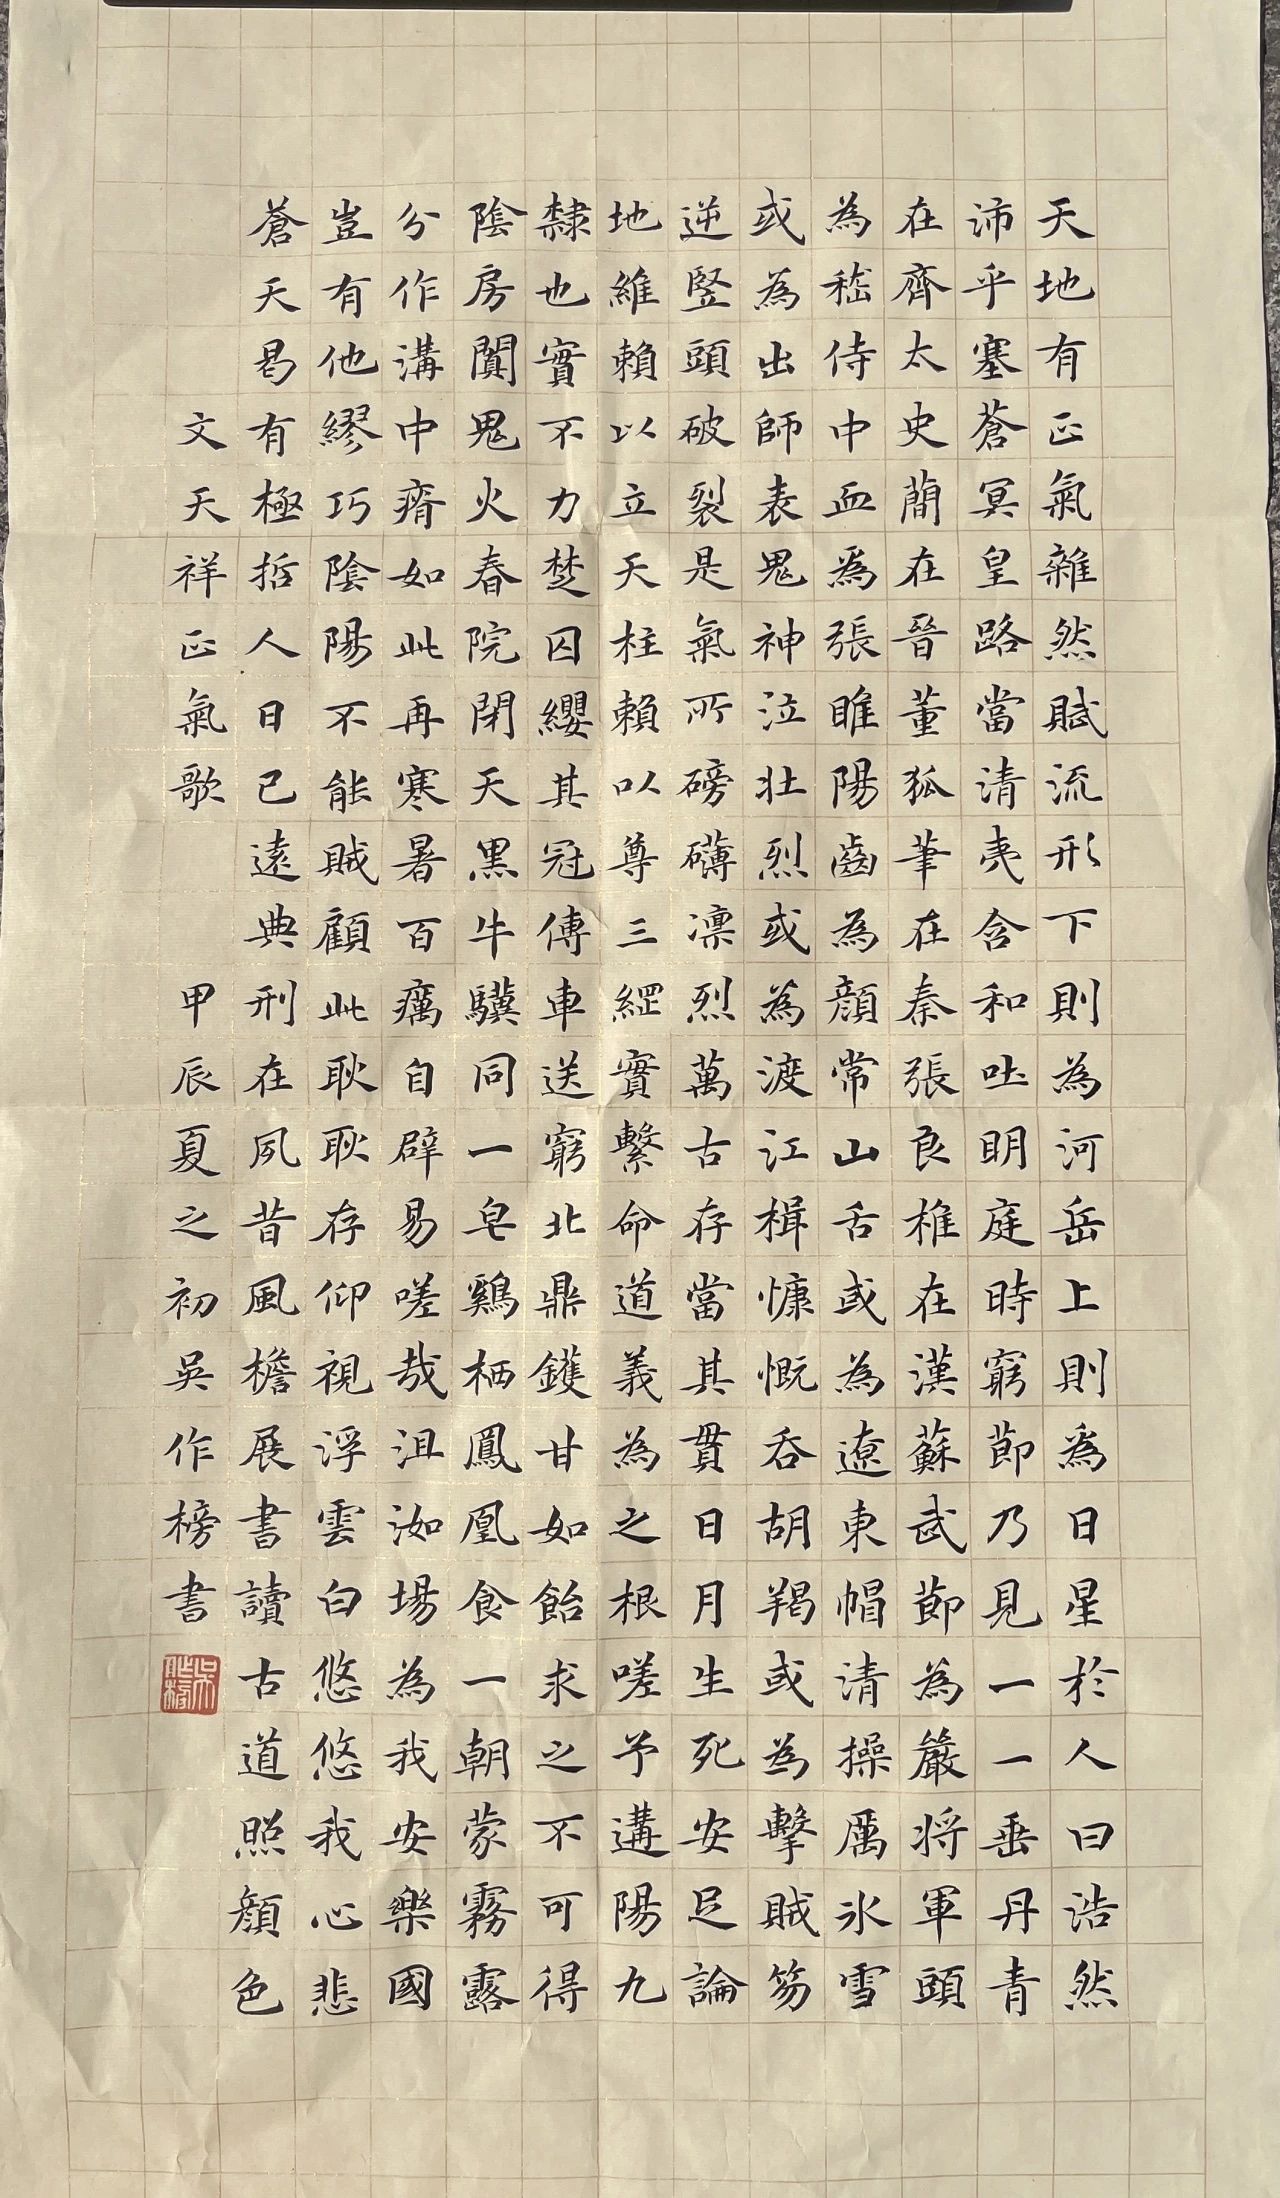 天地有正氣雜然賦流形下則為河岳上則為日星於人曰浩然
沛乎塞蒼冥皇路當清夷含和吐明庭時窮節乃見一一垂丹青
在齊太史簡在晉董狐筆在秦張良椎在漢蘇武節為嚴將軍頭
為嵇侍中血為張睢陽齒為顏常山舌或為遼東帽清操厲冰雪
或為出師表鬼神泣壯烈或為渡江楫慷慨吞胡羯或為擊賊笏
逆豎頭破裂是氣所磅礴凜烈萬古存當其貫日月生死安足論
地維賴以立天柱賴以尊三綱實繫命道義為之根嗟予遘陽九
隸也實不力楚囚纓其冠傳車送窮北鼎鑊甘如飴求之不可得
陰房闃鬼火春院閉天黑牛驥同一皂鷄栖鳳凰食一朝蒙霧露
分作溝中瘠如此再寒暑百癘自辟易嗟哉沮洳場為我安樂國
豈有他繆巧陰陽不能賊顧此耿耿存仰視浮雲白悠悠我心悲
蒼天曷有極哲人日已遠典刑在夙昔風檐展書讀古道照顏色
文天祥正氣歌 甲辰夏之初吳作榜書
吳作榜